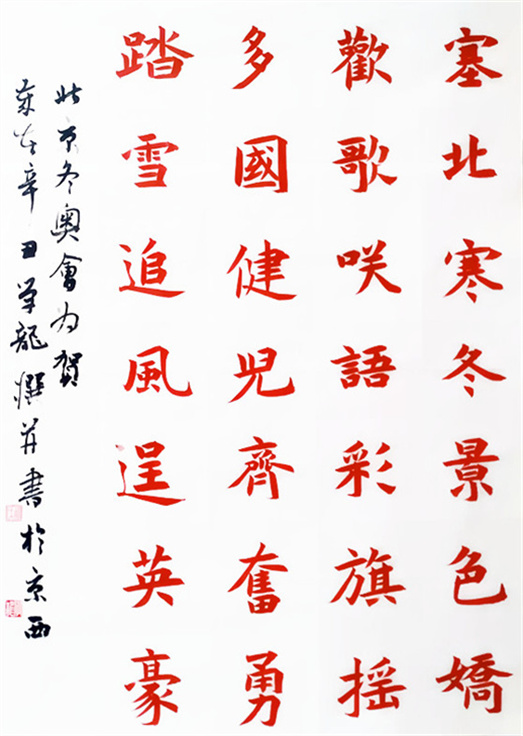 塞北寒冬景色嬌
歡歌咲語彩旗搖
多國健兒齊奮勇
踏雪追風逞英豪
北京冬奧會为賀
歲在辛丑學龍撰并書於京西